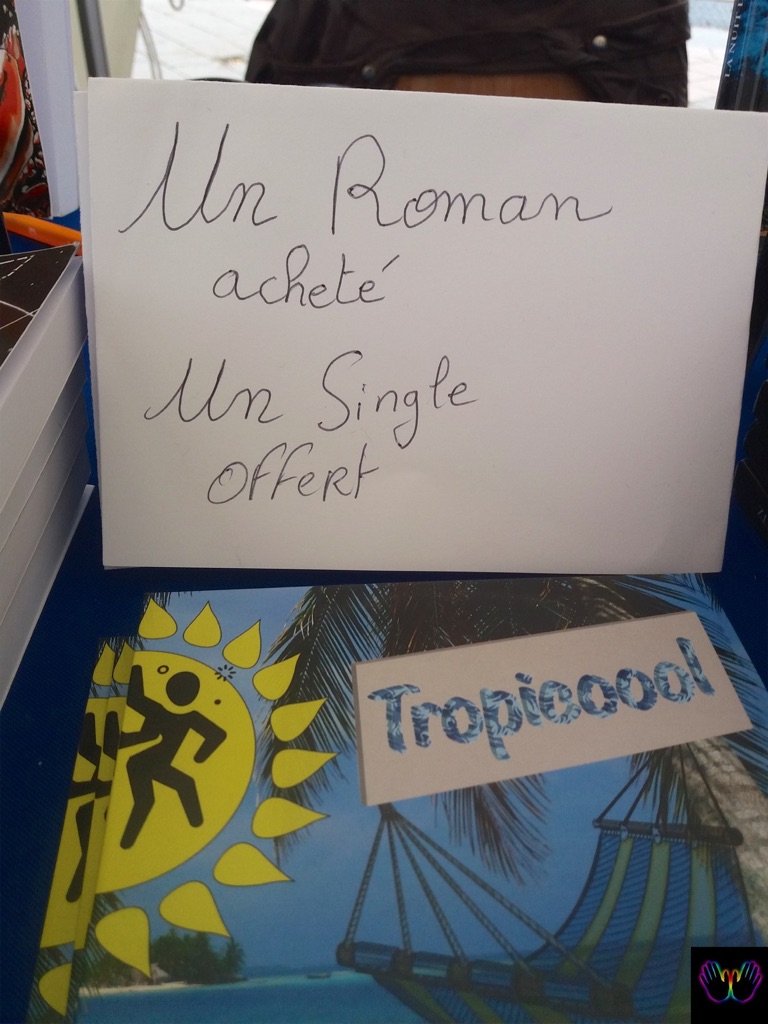 LA NUIT
Un Roman
acheté
Un Single
offert
Tropicoool